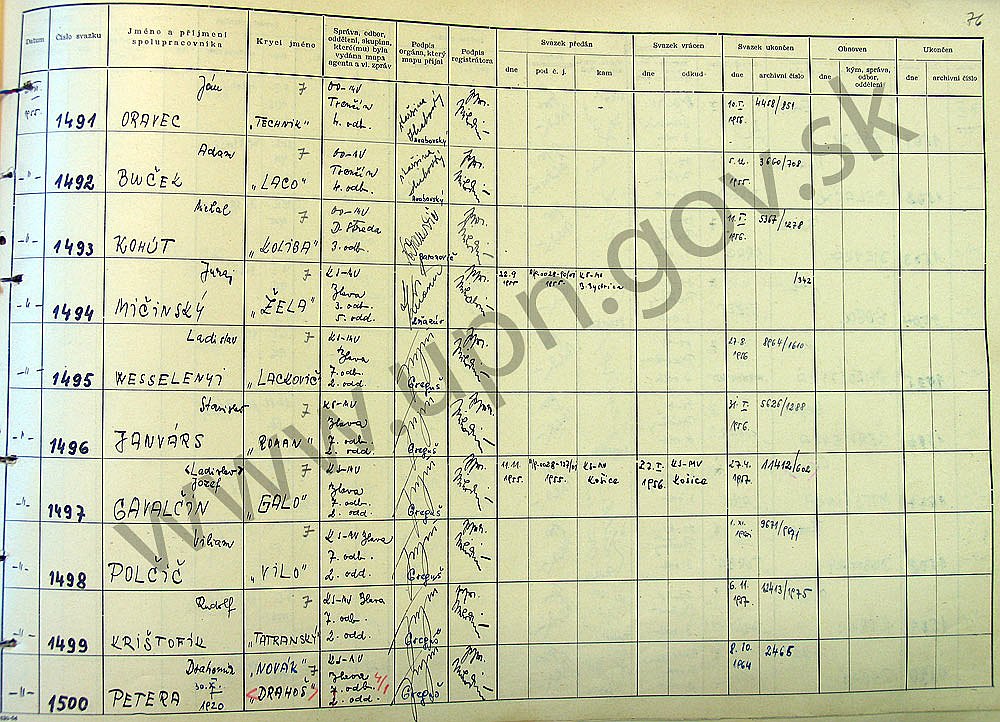 76
Datum
Číslo svazku
Jméno a příjmení spolupracovníka
Krycí jméno
Správa, odbor, oddělení, skupina, které(mu) byla vydána mapa agenta a vl. zpráv
Podpis orgána, který mapu přijal
Podpis registrátora
Svazek předán
Svazek vrácen
Svazek ukončen
Obnoven
Ukončen
dne
pod č. j.
kam
dne
odkud
dne
archivní číslo
dne
kým, správa, odbor, oddělení
dne
archivní číslo
1955.
1491
Ján
ORAVEC
„TECHNIK"
7
OO-MV
Trenčín
4. odb.
Hrabovský
10.I. 1956.
4458/851
-"-
1492
Adam
BUČEK
„LACO"
7
OO-MV
Trenčín
4. odb.
Hrabovský
1955.
3660/708
-"-
1493
Michal
KOHÚT
„KOLIBA"
7
OO-MV
D. Streda
3. odb.
1956.
5367/1278
-"-
1494
Juraj
MIČINSKÝ
„ŽELA"
7
KS-MV
Ilava
3. odb.
5. odd.
22.9
1955.
KS-MV
B. Bystrica
/342
-"-
1495
Ladislav
WESSELENYI
„LACKOVIČ"
7
KS-MV
Ilava
7. odb.
2. odd.
Greguš
27.8.
1956
8964/1610
-"-
1496
Stanislav
JANVÁRS
„ROMAN"
7
KS-MV
Ilava
7. odb.
2. odd.
Greguš
1956.
5626/1288
-"-
1497
<Ladislav>
Jozef
GAVALČÍN
„GALO"
7
KS-MV
Ilava
7. odb.
2. odd.
Greguš
11.11.
1955.
1955.
KS-MV
Košice
1956.
KS-MV
Košice
27.4.
1957.
11412/602
-"-
1498
Viliam
POLČIČ
„VILO"
7
KS-MV Ilava
7. odb.
2. odd.
Greguš
1. XI.
9671/1671
-"-
1499
Rudolf
KRIŠTOFÍK
„TATRANSKÝ"
7
KS-MV Ilava
7. odb.
2. odd.
Greguš
6. 11.
1957.
12413/1975
-"-
1500
Drahomír
PETERA
1920
„NOVÁK" 7
<DRAHOŠ>
KS-MV
Ilava
7. odb.
2. odd.
4/1
Greguš
8. 10.
1964
2465
www.upn.gov.sk